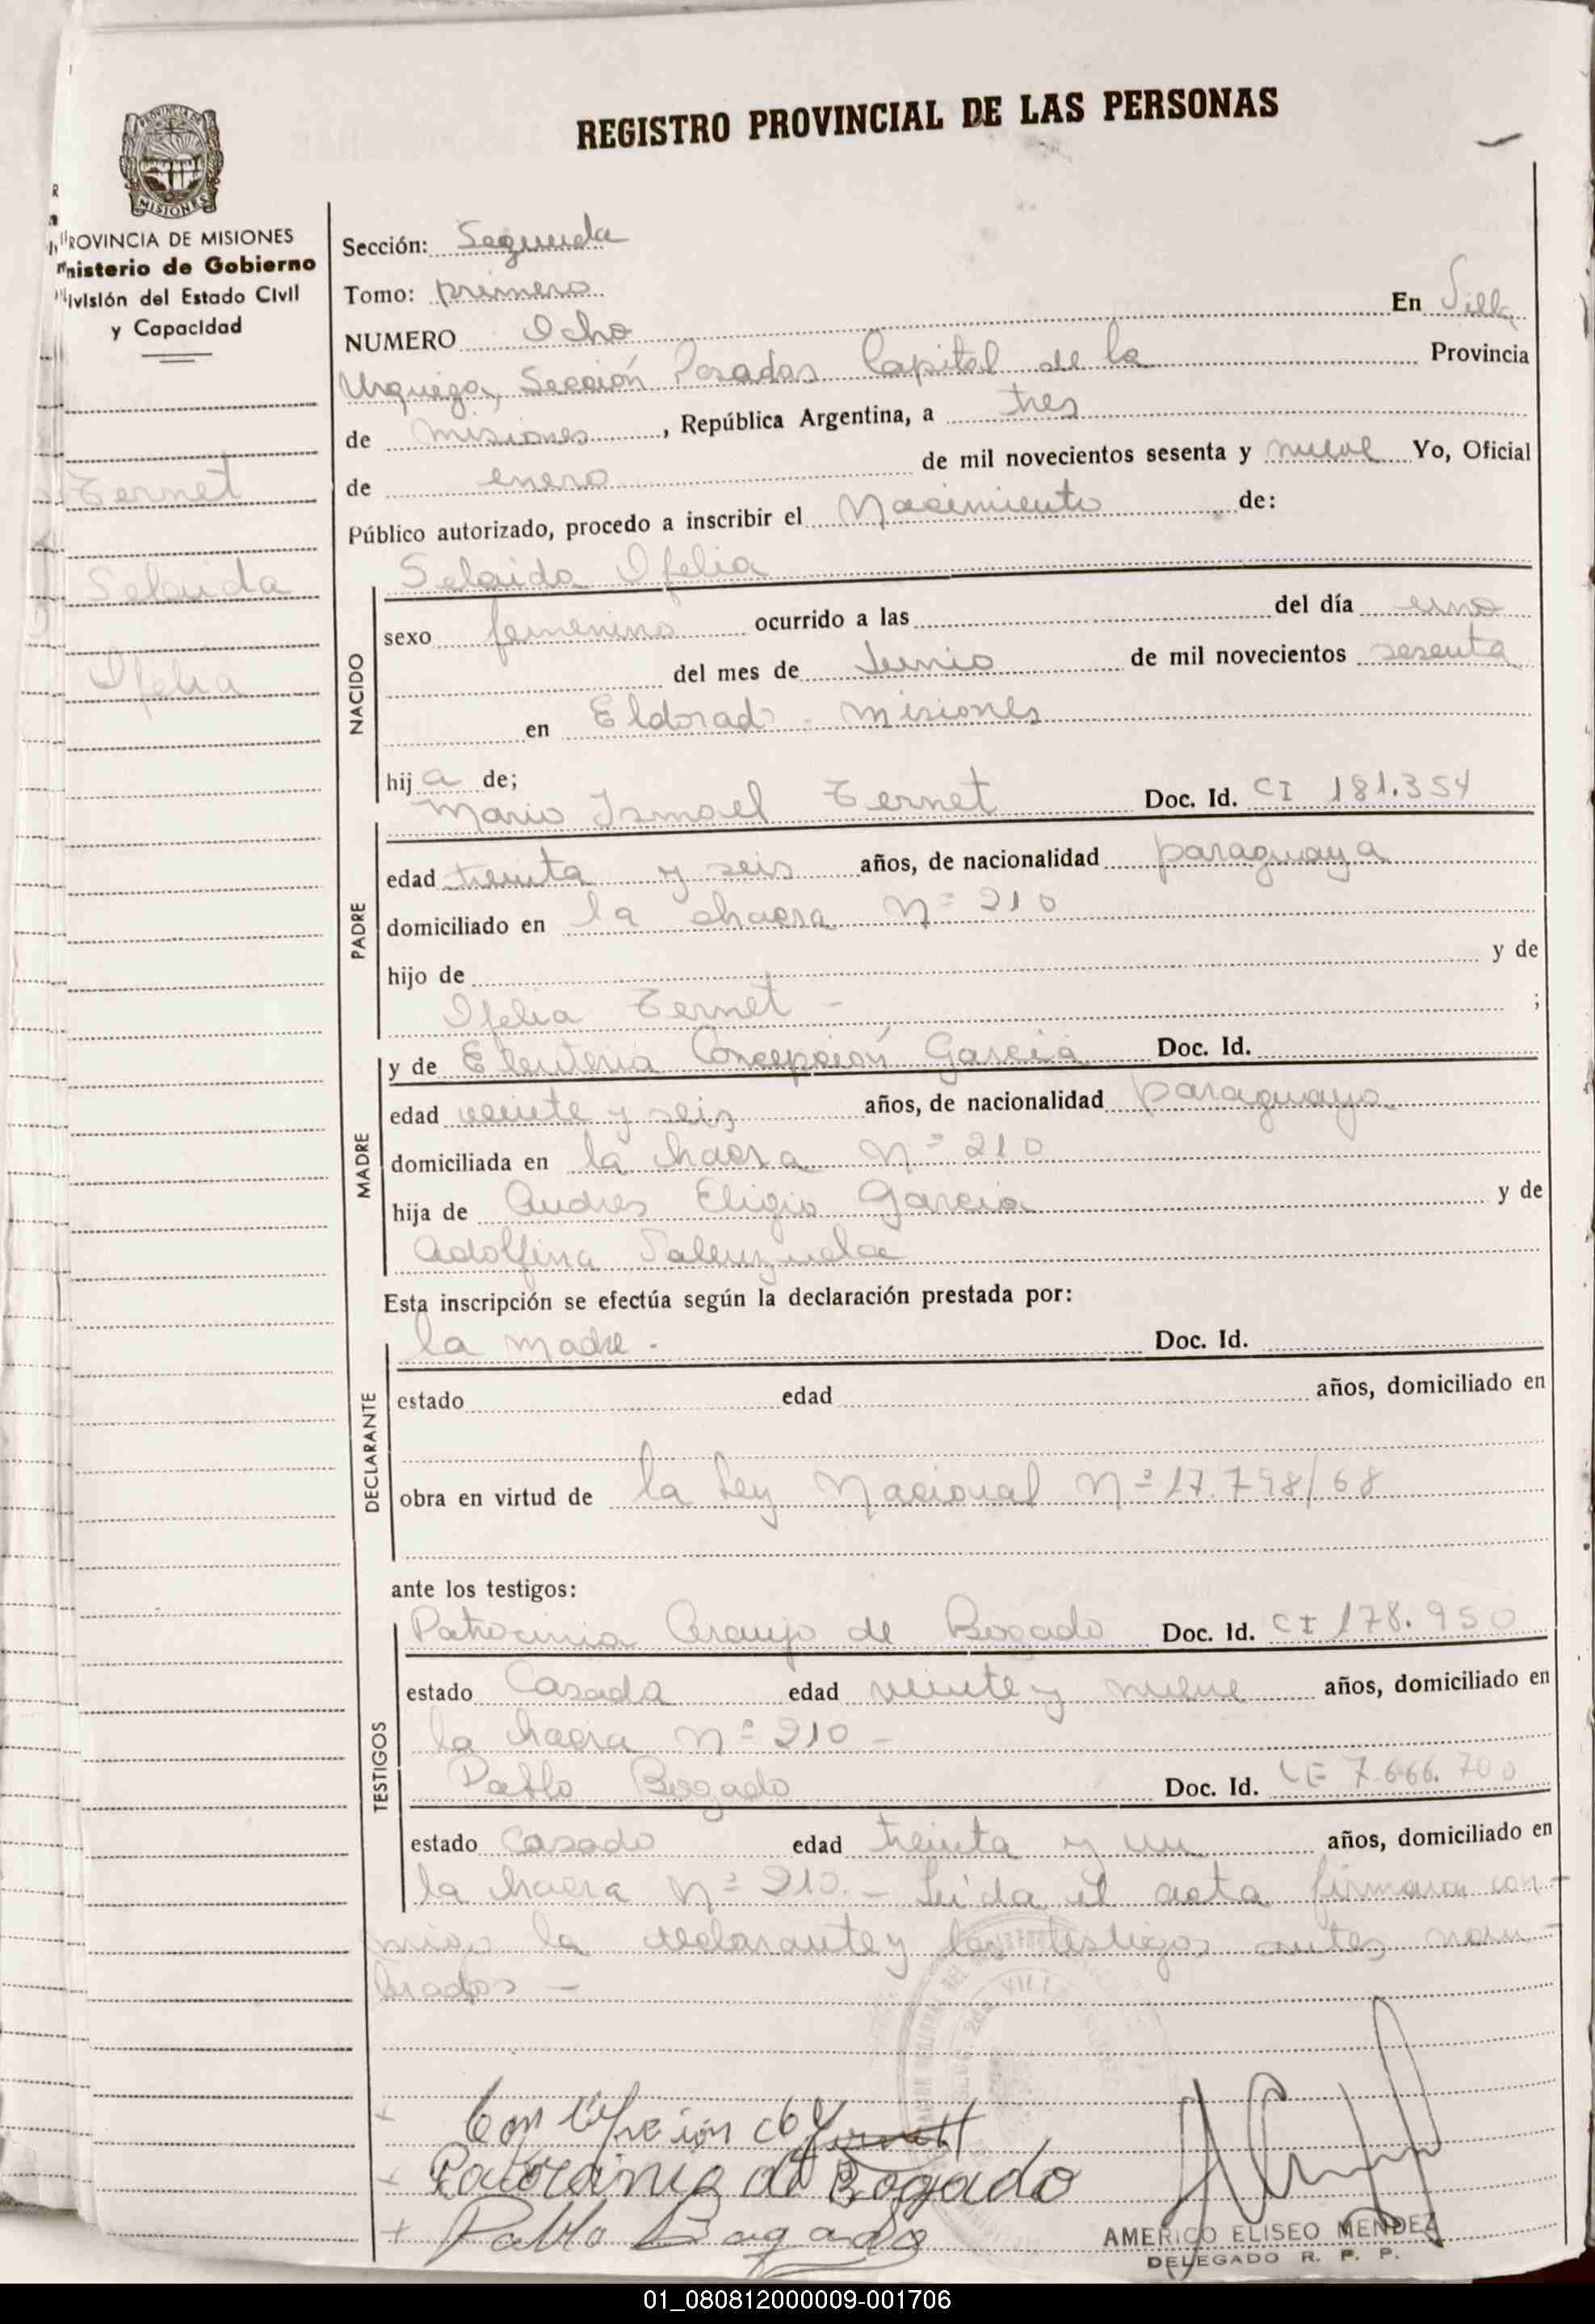 REGISTRO PROVINCIAL DE LAS PERSONAS
MISIONES
PROVINCIA DE MISIONES
nisterio de Gobierno
ivisión del Estado Civil
y Capacidad
Zernet
Selanida
Ofelia
Sección: Segunda
Tomo: primero
NUMERO Ocho En Villa
Urquiza, Sección Posadas Capital de la Provincia
de Misiones, República Argentina, a tres
de enero de mil novecientos sesenta y nueve Yo, Oficial
Público autorizado, procedo a inscribir el Nacimiento de:
Ofelia
NACIDO
sexo femenino ocurrido a las del día uno
del mes de Junio de mil novecientos sesenta
en Eldorado - Misiones
hija de;
Mario Ismael Zernet Doc. Id. CI 181.354
PADRE
edad treinta y seis años, de nacionalidad paraguaya
domiciliado en la chacra Nº 210
hijo de y de
Ofelia Zernet - ;
MADRE
y de Eleuteria Concepción Garcia Doc. Id.
edad veinte y seis años, de nacionalidad paraguaya
domiciliada en la chacra Nº 210
hija de Andres Eligio Garcia y de
Adolfina Valenzuela
Esta inscripción se efectúa según la declaración prestada por:
la madre - Doc. Id.
DECLARANTE
estado edad años, domiciliado en
obra en virtud de la Ley Nacional Nº 17.798/68
ante los testigos:
TESTIGOS
Patrocinia Araujo de Bogado Doc. Id. CI 178.950
estado Casada edad veinte y nueve años, domiciliado en
la chacra Nº 210 -
Pablo Bogado Doc. Id. LE 7.666.700
estado Casado edad treinta y un años, domiciliado en
la chacra Nº 210.- Leida el acta firmaron con-
migo la declarante y los testigos antes nom-
brados -
Patrocinia de Bogado
Pablo Bogado
AMERICO ELISEO MENDEZ
DELEGADO R. P. P.
01_080812000009-001706